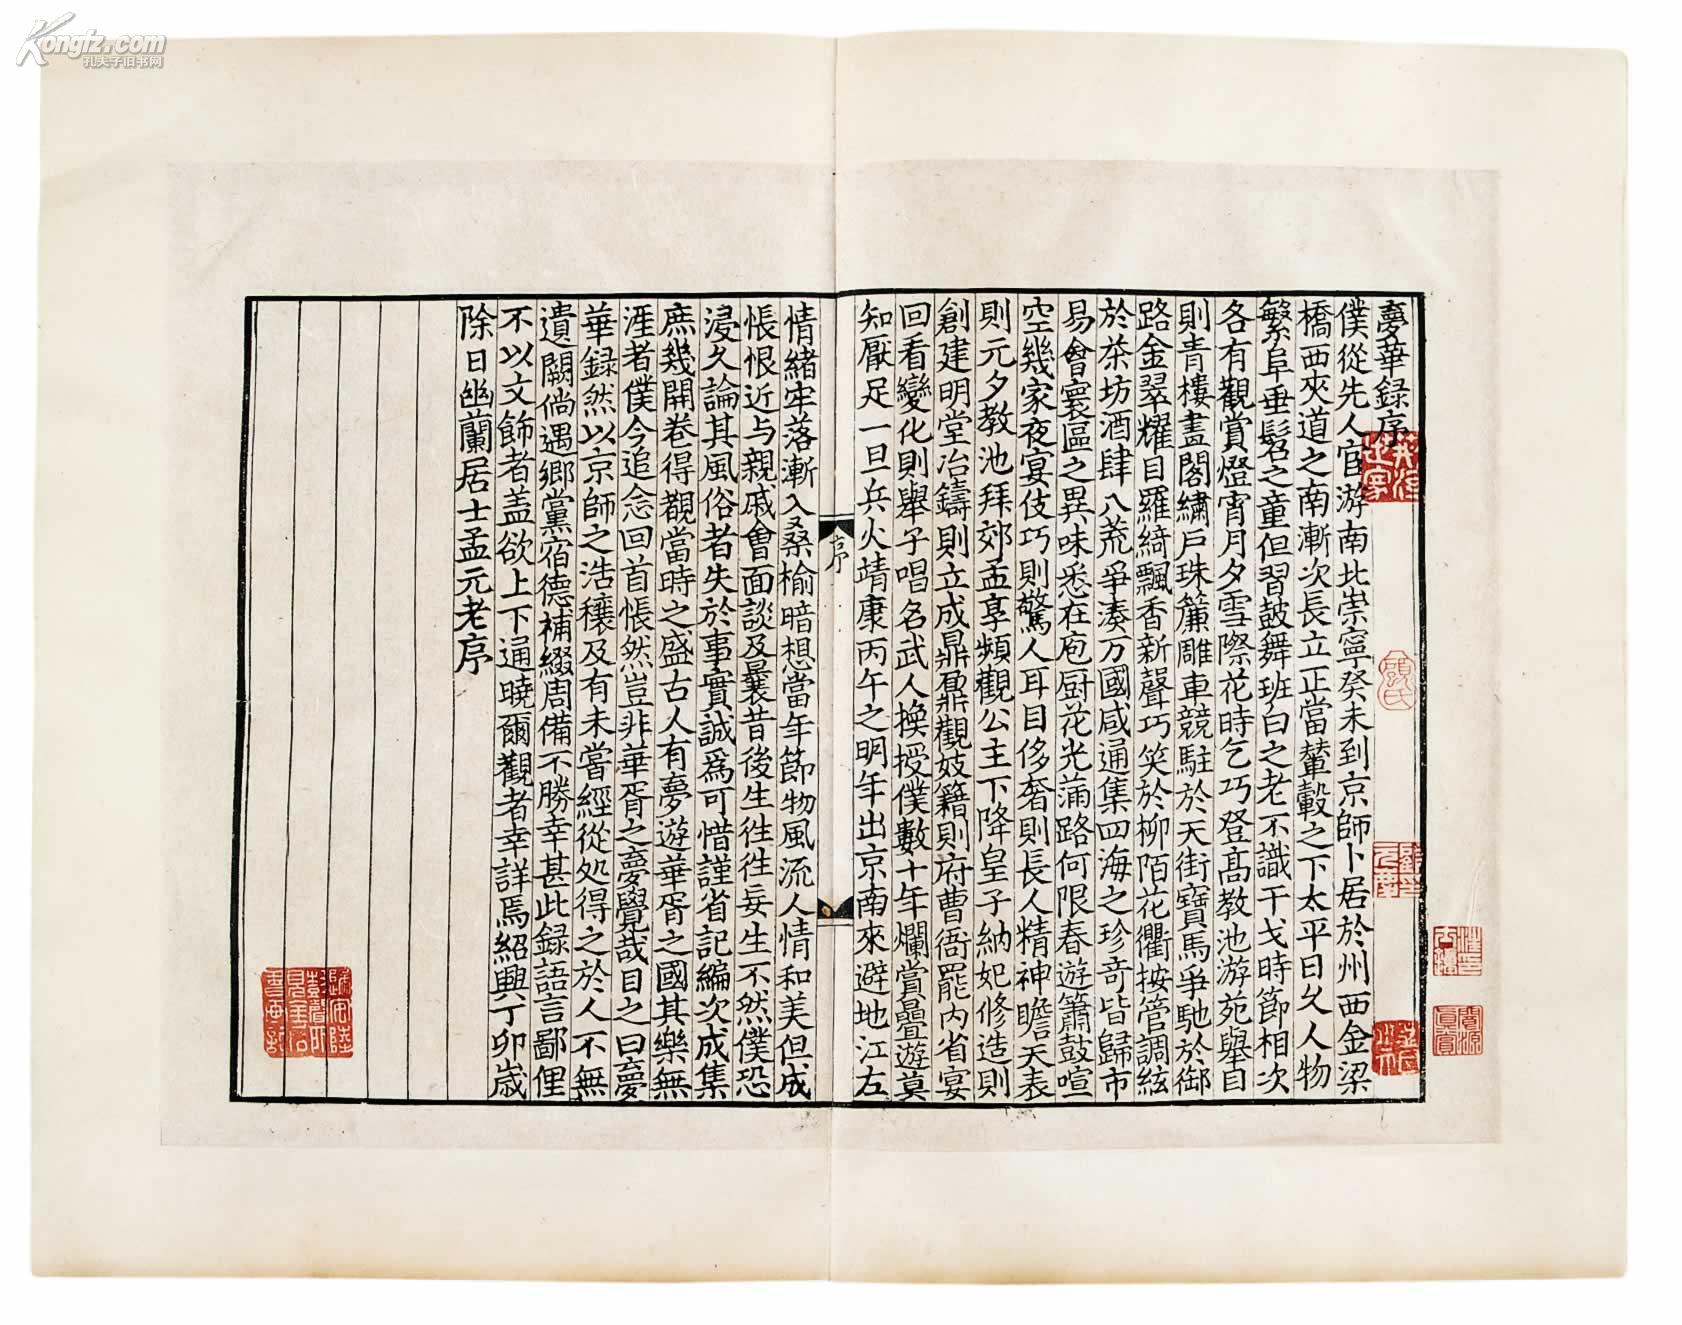 夢華録序
僕從先人宦游南北崇寧癸未到京師卜居於州西金梁
橋西夾道之南漸次長立正當輦轂之下太平日久人物
繁阜垂髫之童但習鼓舞班白之老不識干戈時節相次
各有觀賞燈宵月夕雪際花時乞巧登髙教池游苑舉目
則青樓畫閣繡戶珠簾雕車競駐於天街寶馬爭馳於御
路金翠耀目羅綺飄香新聲巧笑於柳陌花衢按管調絃
於茶坊酒肆八荒爭湊万國咸通集四海之珍奇皆歸市
易會寰區之異味悉在庖厨花光滿路何限春遊簫鼓喧
空幾家夜宴伎巧則驚人耳目侈奢則長人精神瞻天表
則元夕教池拜郊孟享頻觀公主下降皇子納妃修造則
創建明堂冶鑄則立成鼎鼐觀妓籍則府曹衙罷内省宴
回看變化則舉子唱名武人換授僕數十年爛賞疊遊莫
知厭足一旦兵火靖康丙午之明年出京南來避地江左
序
情緒牢落漸入桑榆暗想當年節物風流人情和美但成
悵恨近与親戚會面談及曩昔後生徃徃妄生不然僕恐
浸久論其風俗者失於事實誠爲可惜謹省記編次成集
庶幾開卷得覩當時之盛古人有夢遊華胥之國其樂無
涯者僕今追念回首悵然豈非華胥之夢覺哉目之曰夢
華録然以京師之浩穰及有未嘗經從処得之於人不無
遺闕倘遇鄉黨宿德補綴周備不勝幸甚此録語言鄙俚
不以文飾者盖欲上下通曉爾觀者幸詳焉紹興丁卯歳
除日幽蘭居士孟元老序
顧氏
Kongfz.com
孔夫子旧书网